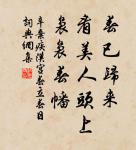 春已歸來
看美人頭上
裊裊春幡
辛棄疾漢宮春立春日
詞典網集